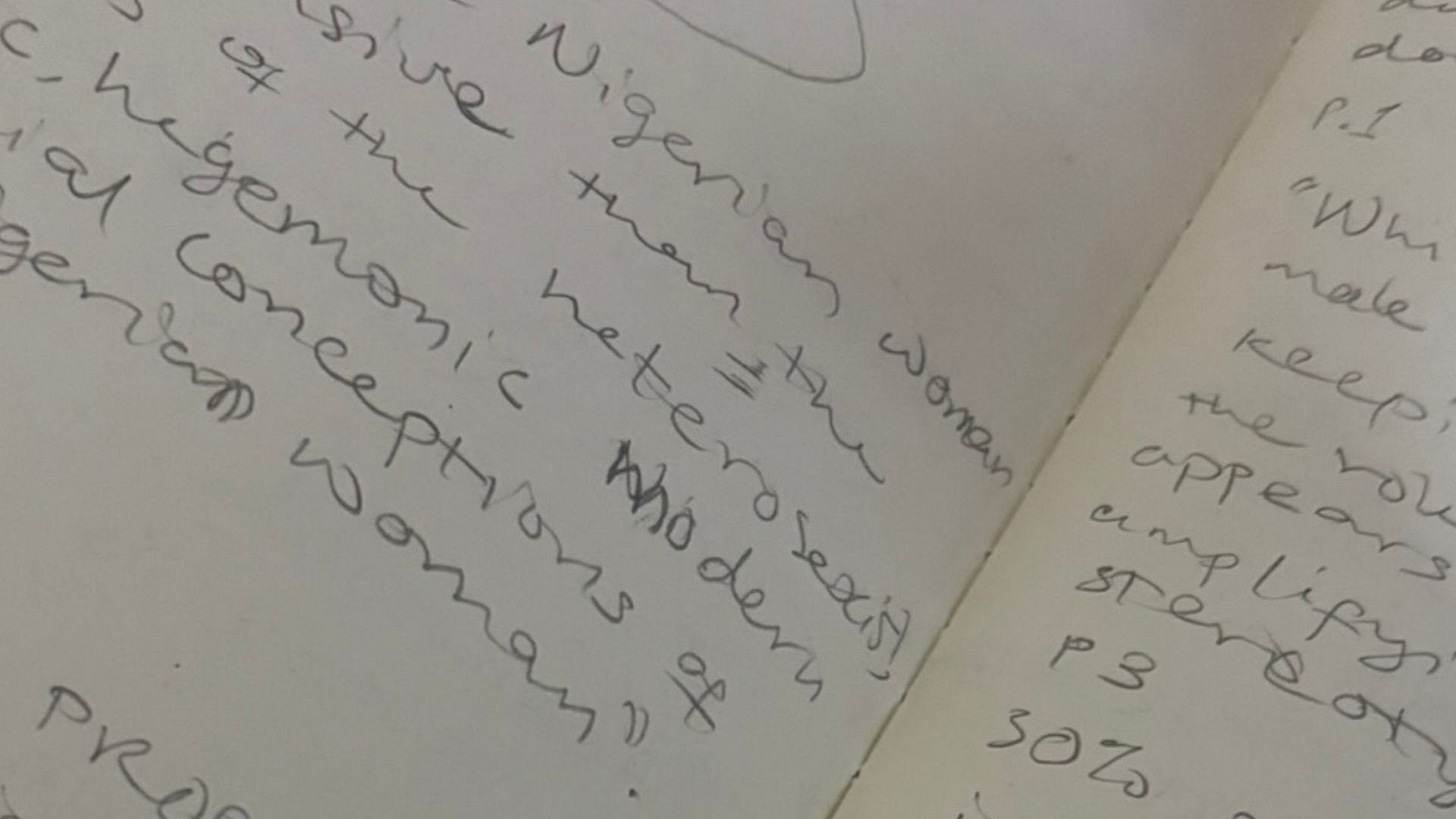 Nigerian woman
sive than the
of the heterosexist,
c-hegemonic modern
ial conceptions of
gerian woman".
PROG
do
P.1
male
keep
the rol
appears
amplify
stereoty
P3
30%